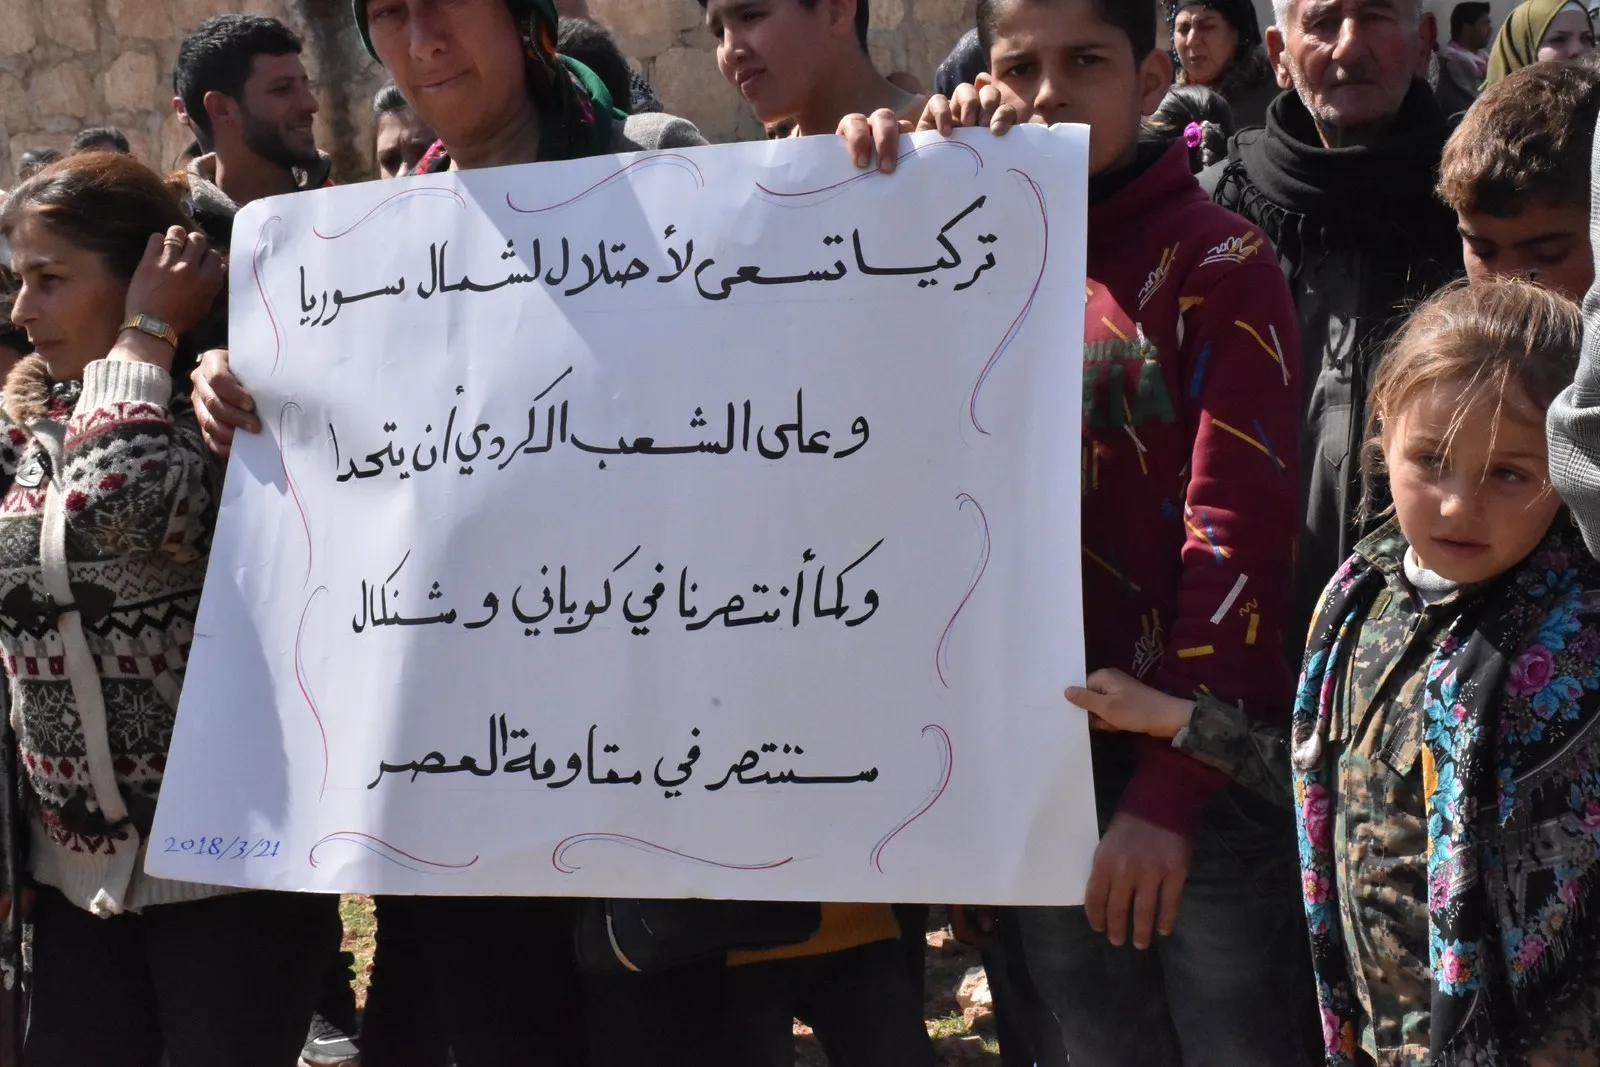 تركيا تسعى لأحتلال لشمال سوريا
وعلى الشعب الكردي أن يتحدا
وكما أنتصرنا في كوباني و شنكال
سننتصر في مقاومة العصر
2018/3/21